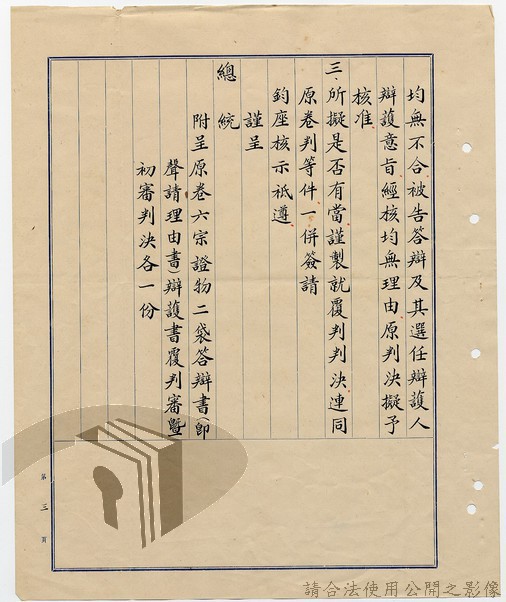 均無不合被告答辯及其選任辯護人
辯護意旨經核均無理由原判決擬予
核准
三、所擬是否有當謹製就覆判判決連同
原卷判等件一併簽請
鈞座核示祇遵
謹呈
總統
附呈原卷六宗證物二袋答辯書(即
聲請理由書)辯護書覆判審暨
初審判決各一份
第三頁
請合法使用公開之影像